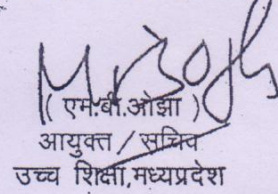 ( एम.बी.ओझा )
आयुक्त / सचिव
उच्च शिक्षा,मध्यप्रदेश